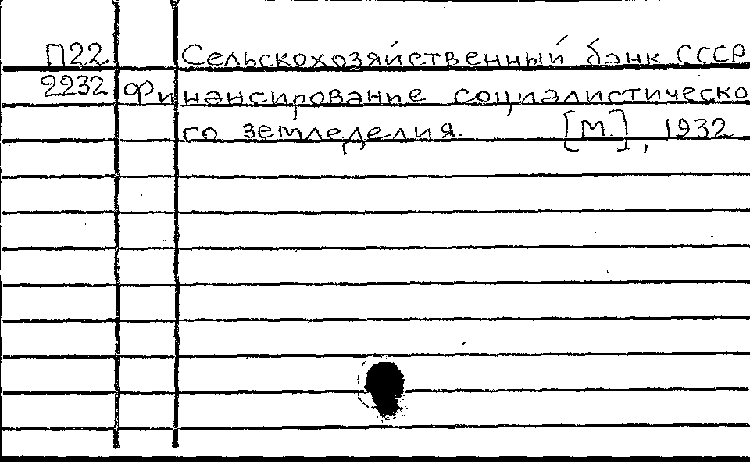 П22 Сельскохозяйственный банк СССР
2232 Финансирование социалистическо
го земледелия. [М.], 1932